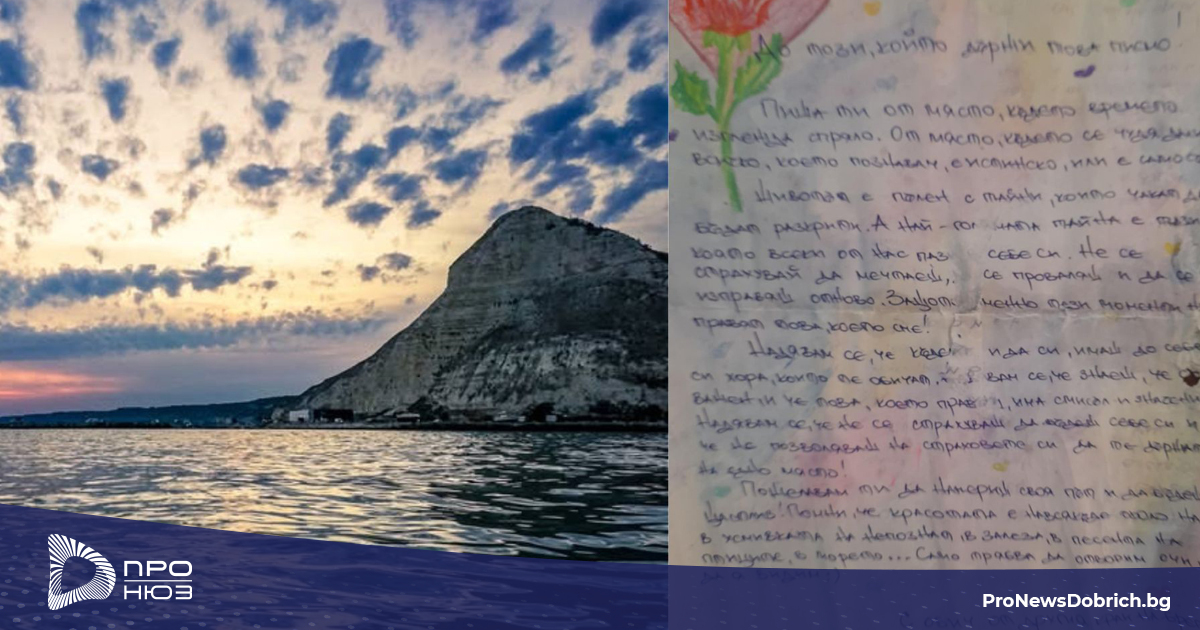 До този, който държи това писмо
Пиша ти от място, където времето
изглежда спряло. От място, където се чудя да
всичко, което познавам, е истинско, или е само с
Животът е пълен с тайни, които чакат д
бъдат разкрити. А най-гол мата тайна е тази
която всеки от нас паз себе си. Не се
страхувай да мечтаеш, се проваляш и да се
изправяш отново. Защот менно тези моменти н
правят това, което сме!
Надявам се, че къде и да си, имаш до себе
си хора, които те обичат, вам се, че знаеш, че
важен и че това, което прав ш, има смисъл и значени
Надявам се, че не се страхуваш да бъдеш себе си и
че не позволяваш на страховете си да те държа
на едно място!
Пожелавам ти да намериш своя път и да бъдеш
щастлив! Помни, че красотата е навсякъде около н
в усмивката на непознат, в залеза, в песента на
птиците, в морето... Само трябва да отворим очи
ПРО
НЮЗ
ProNewsDobrich.bg